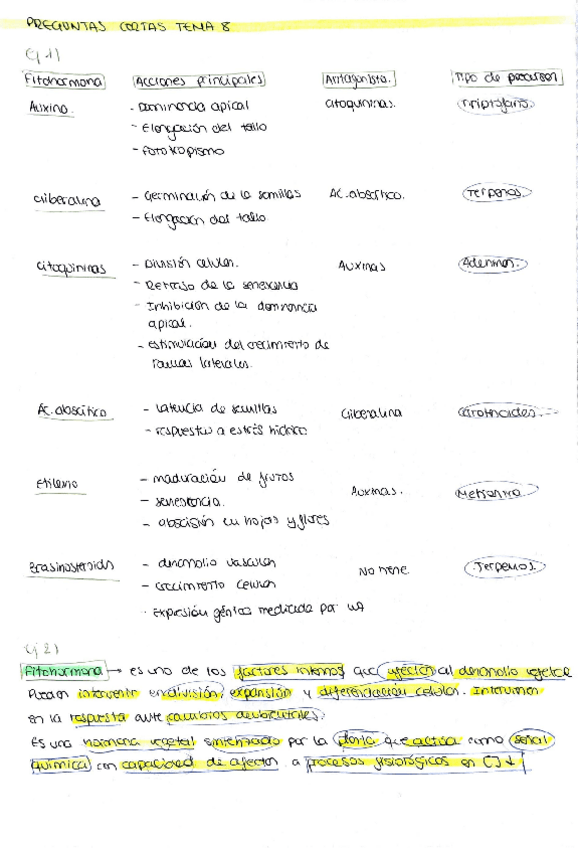 PREGUNTAS CORTAS TEMA 8
Ej 1)
Fitohormona Acciones principales Antagonista. Tipo de precursor
Auxina. - Dominancia apical Citoquininas. Triptófano.
- Elongación del tallo
- Fototropismo
Giberalina - Germinación de la semillas Ac. abscítico. Terpenos.
- Elongación del tallo
Citoquininas - División celular. Auxinas Adeninas.
- Retraso de la senescencia
- Inhibición de la dominancia
apical.
- estimulación del crecimiento de
ramas laterales.
Ac. abscítico - latencia de semillas Giberalina Carotinoides.
- respuesta a estrés hídrico
Etileno - maduración de frutos Auxinas. Metionina
- senescencia.
- abscisión en hojas y flores
Brasinosteroids - desarrollo vascular No tiene. Terpenos.
- crecimiento celular
- Expresión génica mediada por
Ej 2)
Fitohormona → es uno de los factores internos que afectan al desarrollo vegetal
Pueden intervenir en división, expansión y diferenciación celular. Intervienen
en la respuesta ante cambios ambientales.
Es una hormona vegetal sintetizada por la planta que actúa como señal
química con capacidad de afectar a procesos fisiológicos en [] ↓